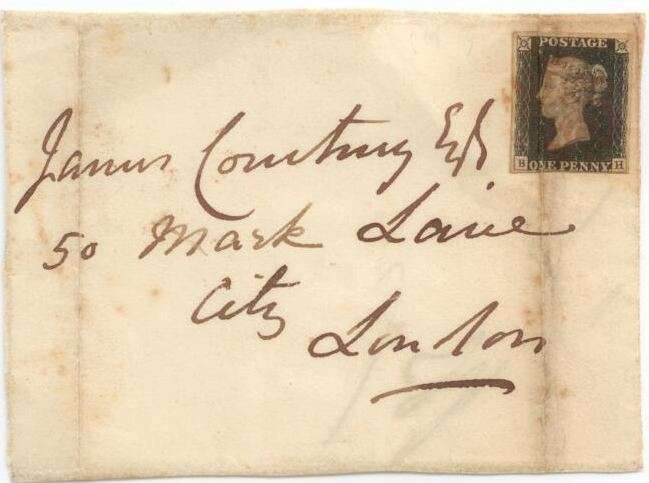 POSTAGE
B ONE PENNY H
James Courtney Esqr
50 Mark Lane
City
London